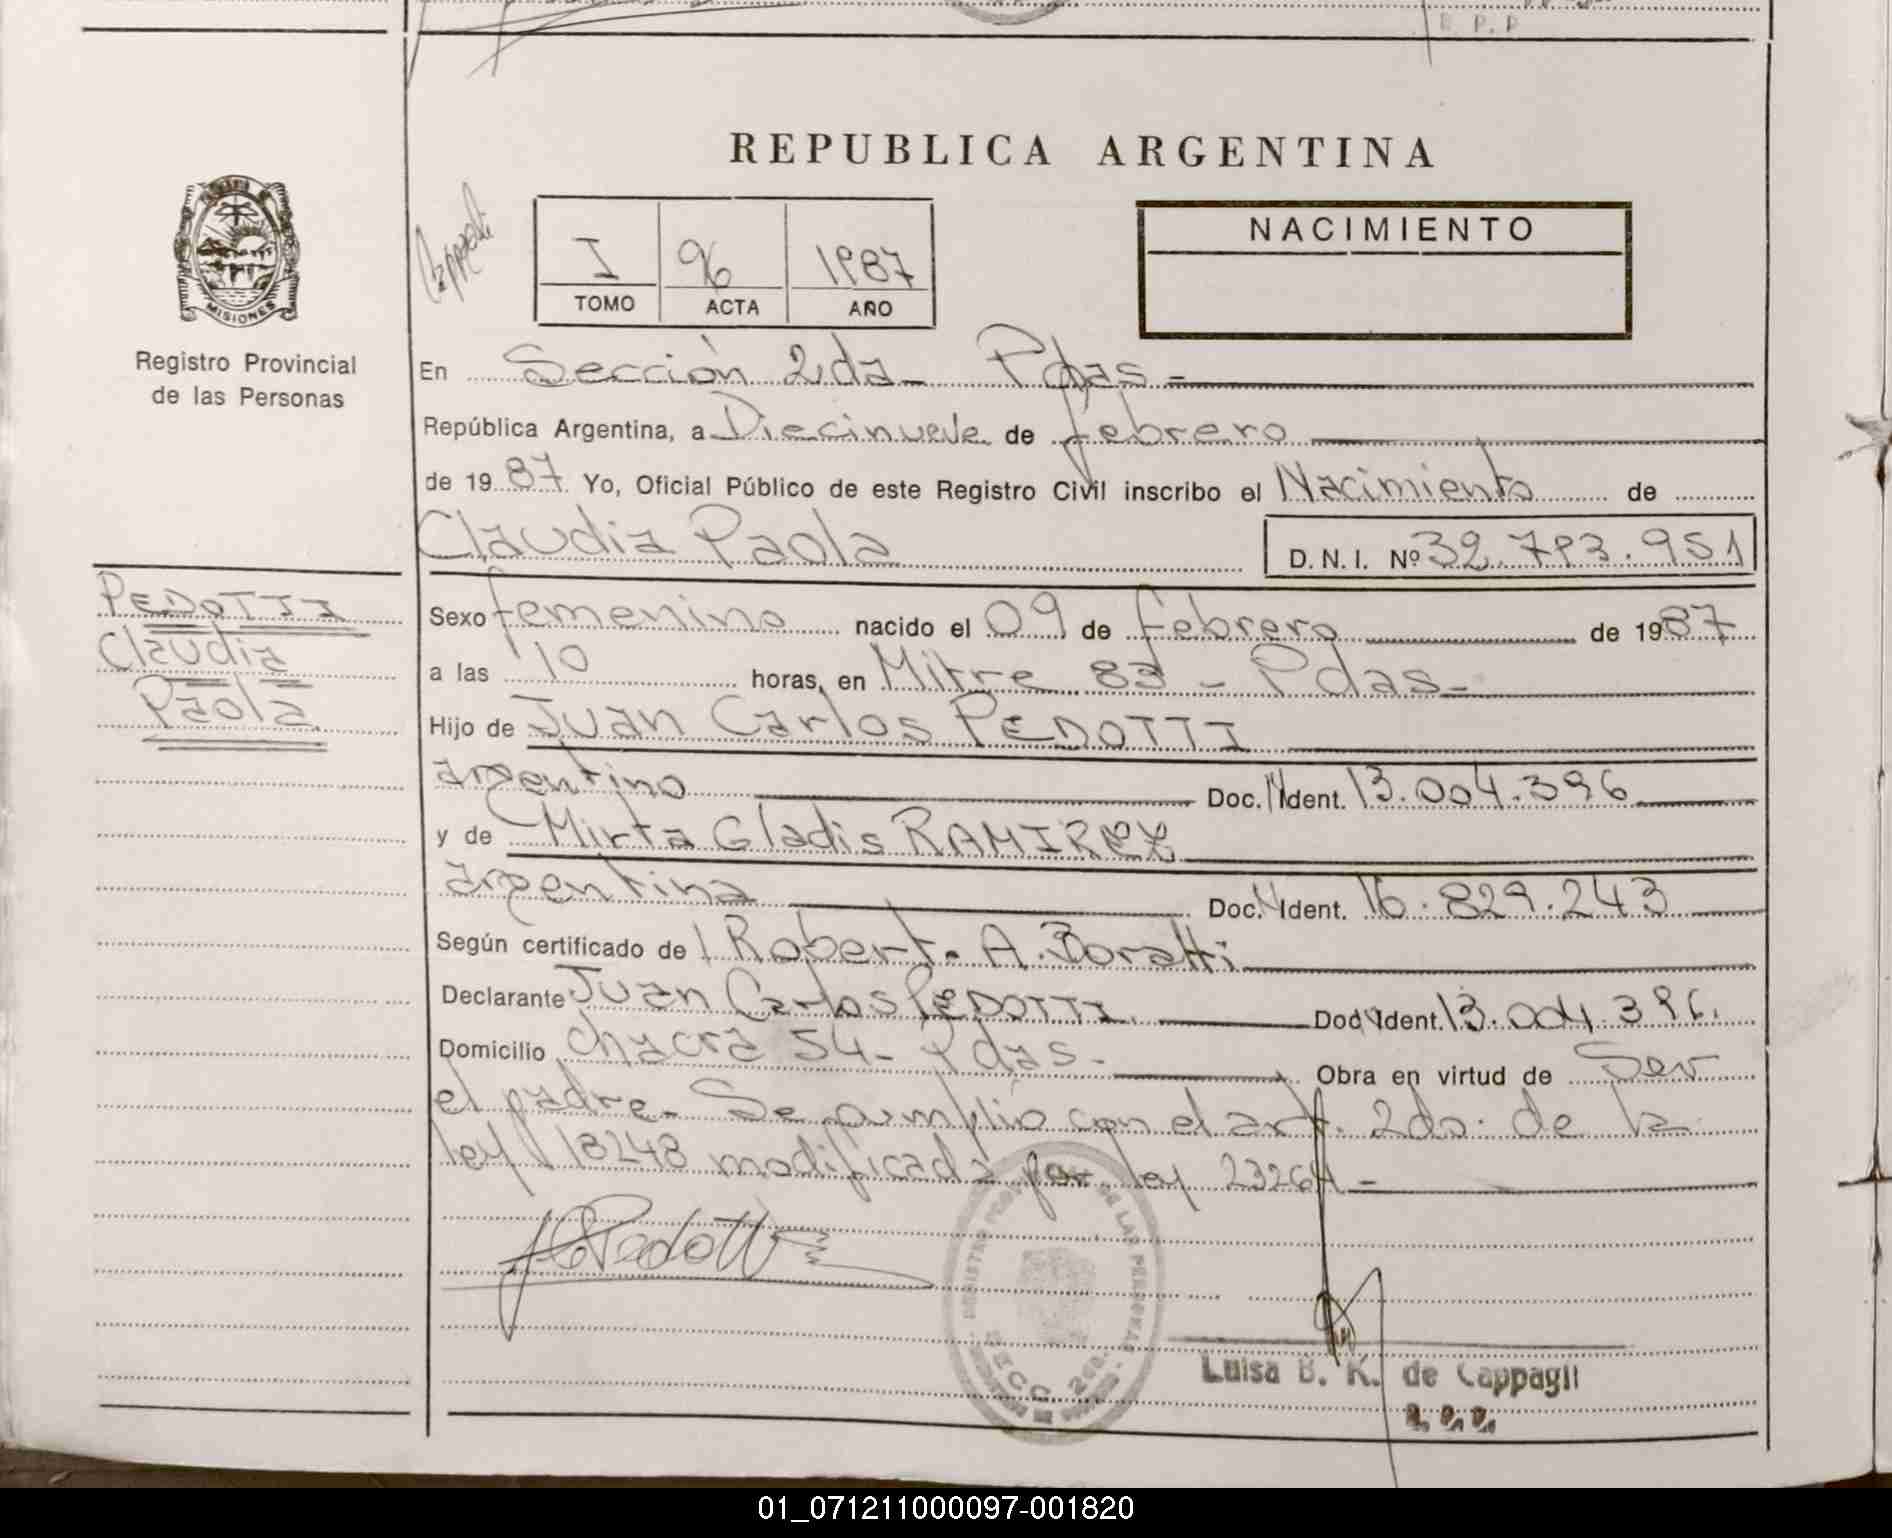 B. P. P
REPUBLICA ARGENTINA
I 96 1987
TOMO ACTA AÑO
NACIMIENTO
MISIONES
Registro Provincial
de las Personas
En Sección 2da - Pdas -
República Argentina, a Diecinueve de febrero
de 1987 Yo, Oficial Público de este Registro Civil inscribo el Nacimiento de
Claudia Paola D.N.I. Nº 32.793.951
PEDOTTI
Claudia
Paola
Sexo femenino nacido el 09 de febrero de 1987
a las 10 horas, en Mitre 83 - Pdas -
Hijo de Juan Carlos PEDOTTI
argentino Doc. Ident. 13.004.396
y de Mirta Gladis RAMIREZ
argentina Doc. Ident. 16.829.243
Según certificado de Robert. A. Boratti
Declarante Juan Carlos PEDOTTI Doc. Ident. 13.004.396.
Domicilio chacra 54 - Pdas - Obra en virtud de Ser
el padre - Se cumplio con el art. 2do. de la
ley 18248 modificada por ley 23264 -
JCPedotti
REGISTRO DE LAS PERSONAS
SECC. 2da.
Luisa B. K. de Cappagli